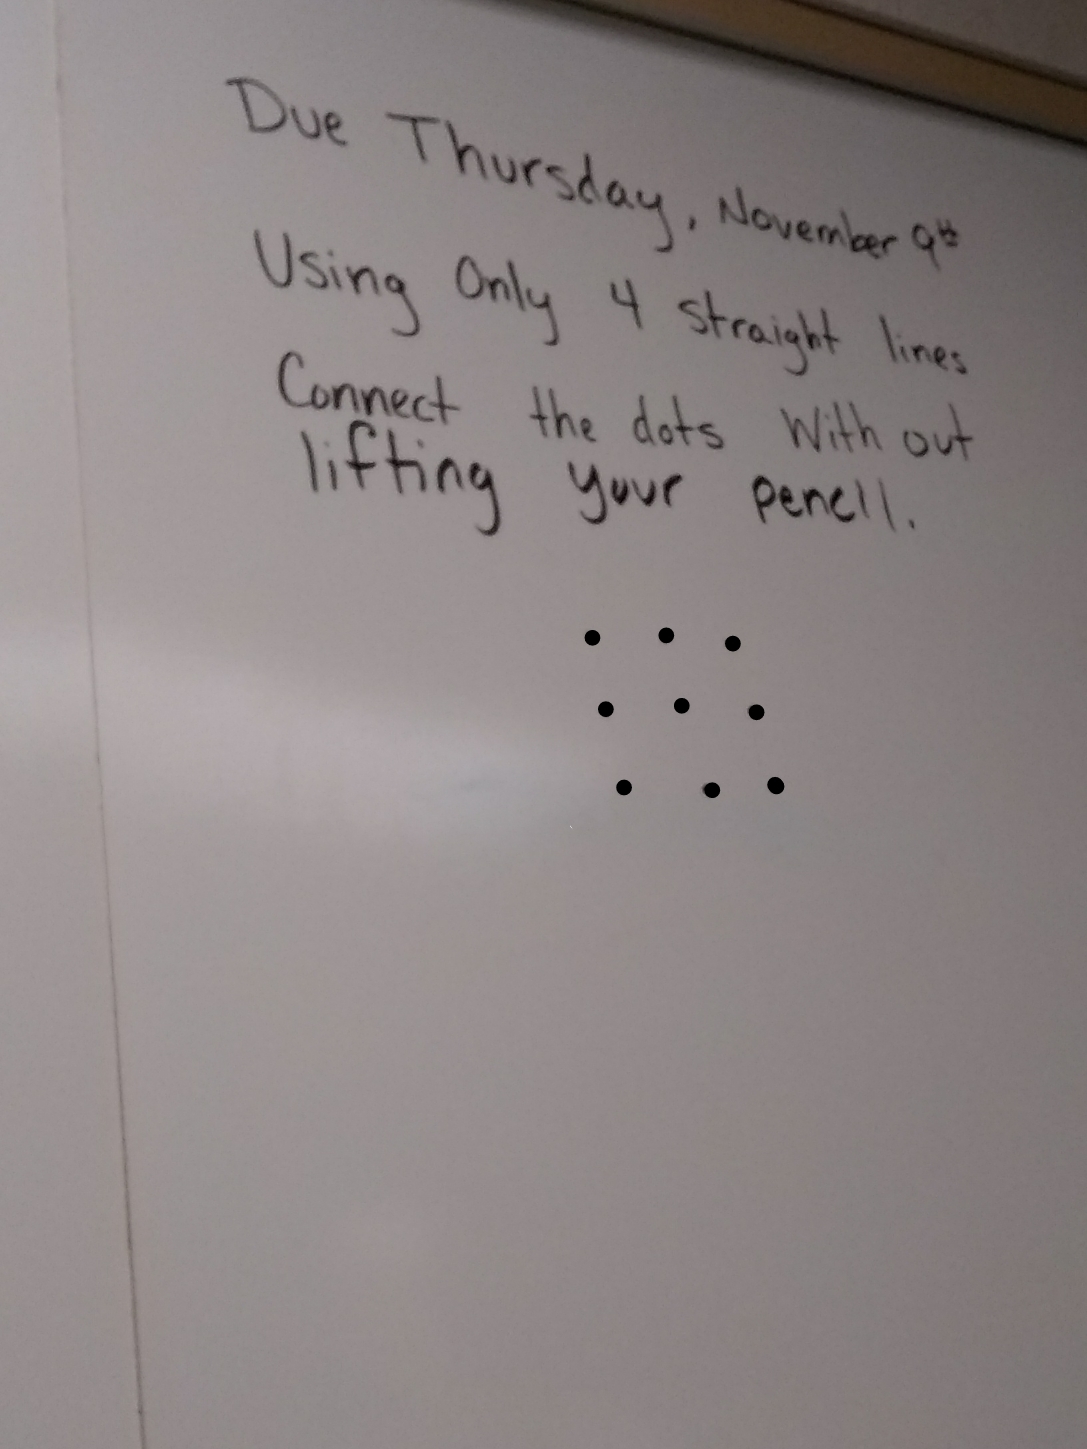 Due Thursday, November 9th
Using Only 4 straight lines
Connect the dots With out
lifting your pencil.